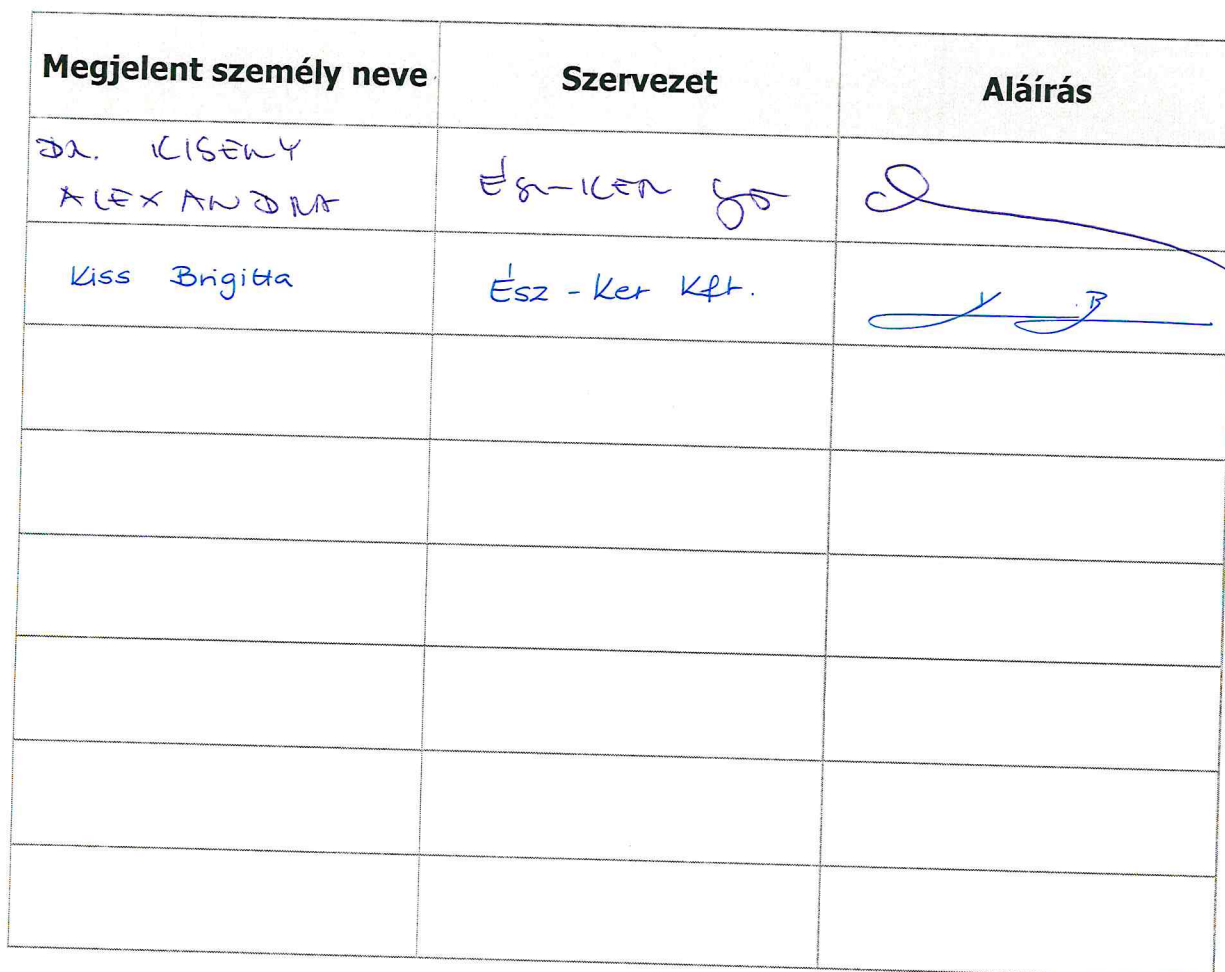 Megjelent személy neve Szervezet Aláírás
DR. KISERY
ALEXANDRA
ÉSZ-KER
Kiss Brigitta Ész-Ker Kft.